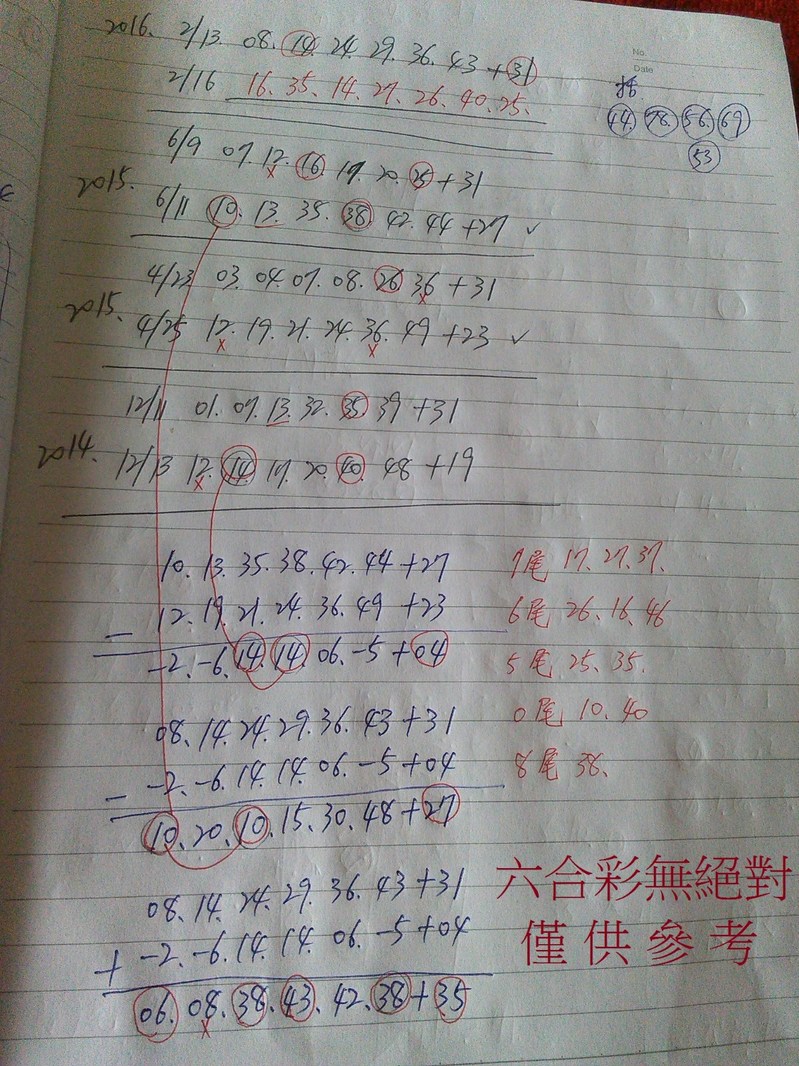 No.
Date
2016. 2/13 08. 14. 24. 29. 36. 43 +31
2/16 16. 35. 14. 27. 26. 40. 25.
44. 78. 56. 69
53
6/9 07. 12. 16. 19. 20. 25 +31
2015.
6/11 10. 13. 35. 38. 42. 44 +27 ✓
4/23 03. 04. 07. 08. 26. 36 +31
2015.
4/25 12. 19. 21. 24. 36. 49 +23 ✓
12/11 01. 07. 13. 32. 35. 39 +31
2014.
12/13 12. 14. 17. 20. 40. 48 +19
10. 13. 35. 38. 42. 44 +27
− 12. 19. 21. 24. 36. 49 +23
-2. -6. 14. 14. 06. -5 +04
7尾 17. 27. 37.
6尾 26. 16. 46
5尾 25. 35.
0尾 10. 40
8尾 38.
08. 14. 24. 29. 36. 43 +31
− -2. -6. 14. 14. 06. -5 +04
10. 20. 10. 15. 30. 48 +27
08. 14. 24. 29. 36. 43 +31
+ -2. -6. 14. 14. 06. -5 +04
06. 08. 38. 43. 42. 38 +35
六合彩無絕對
僅供參考